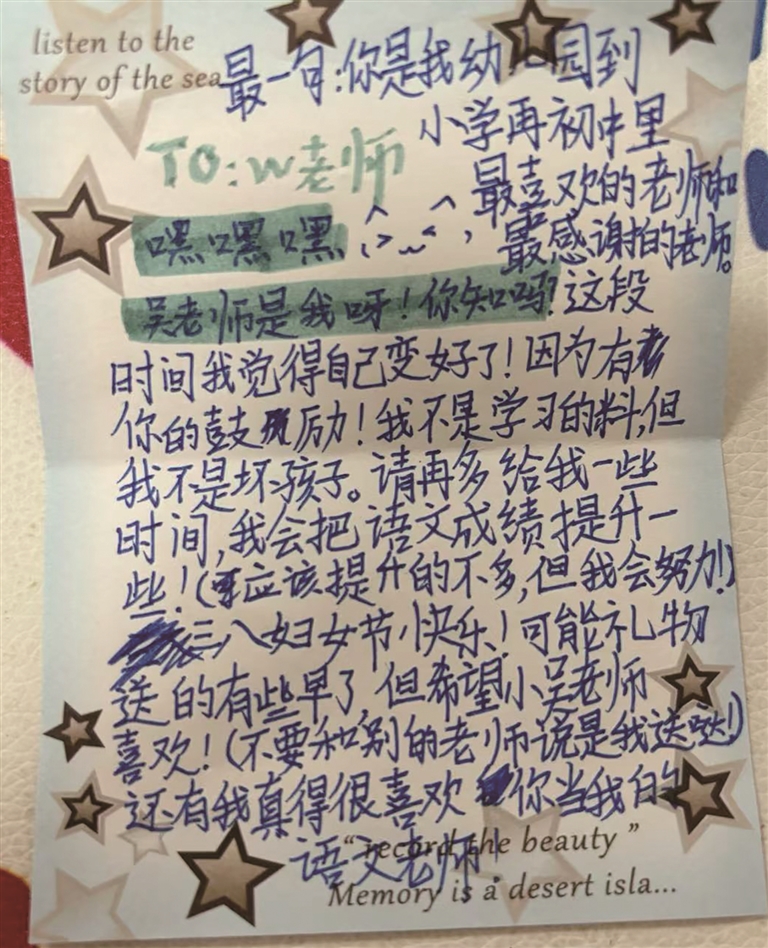 listen to the
story of the sea
最一句:你是我幼儿园到
小学再初中里
最喜欢的老师和
最感谢的老师。
TO:W老师
嘿嘿嘿
吴老师是我呀!你知吗?这段
时间我觉得自己变好了!因为有
你的鼓励!我不是学习的料,但
我不是坏孩子。请再多给我一些
时间,我会把语文成绩提升一
些!(应该提升的不多,但我会努力!)
三八妇女节快乐!可能礼物
送的有些早了,但希望小吴老师
喜欢!(不要和别的老师说是我送哒!)
还有我真得很喜欢你当我的
语文老师!
"record the beauty"
Memory is a desert isla...